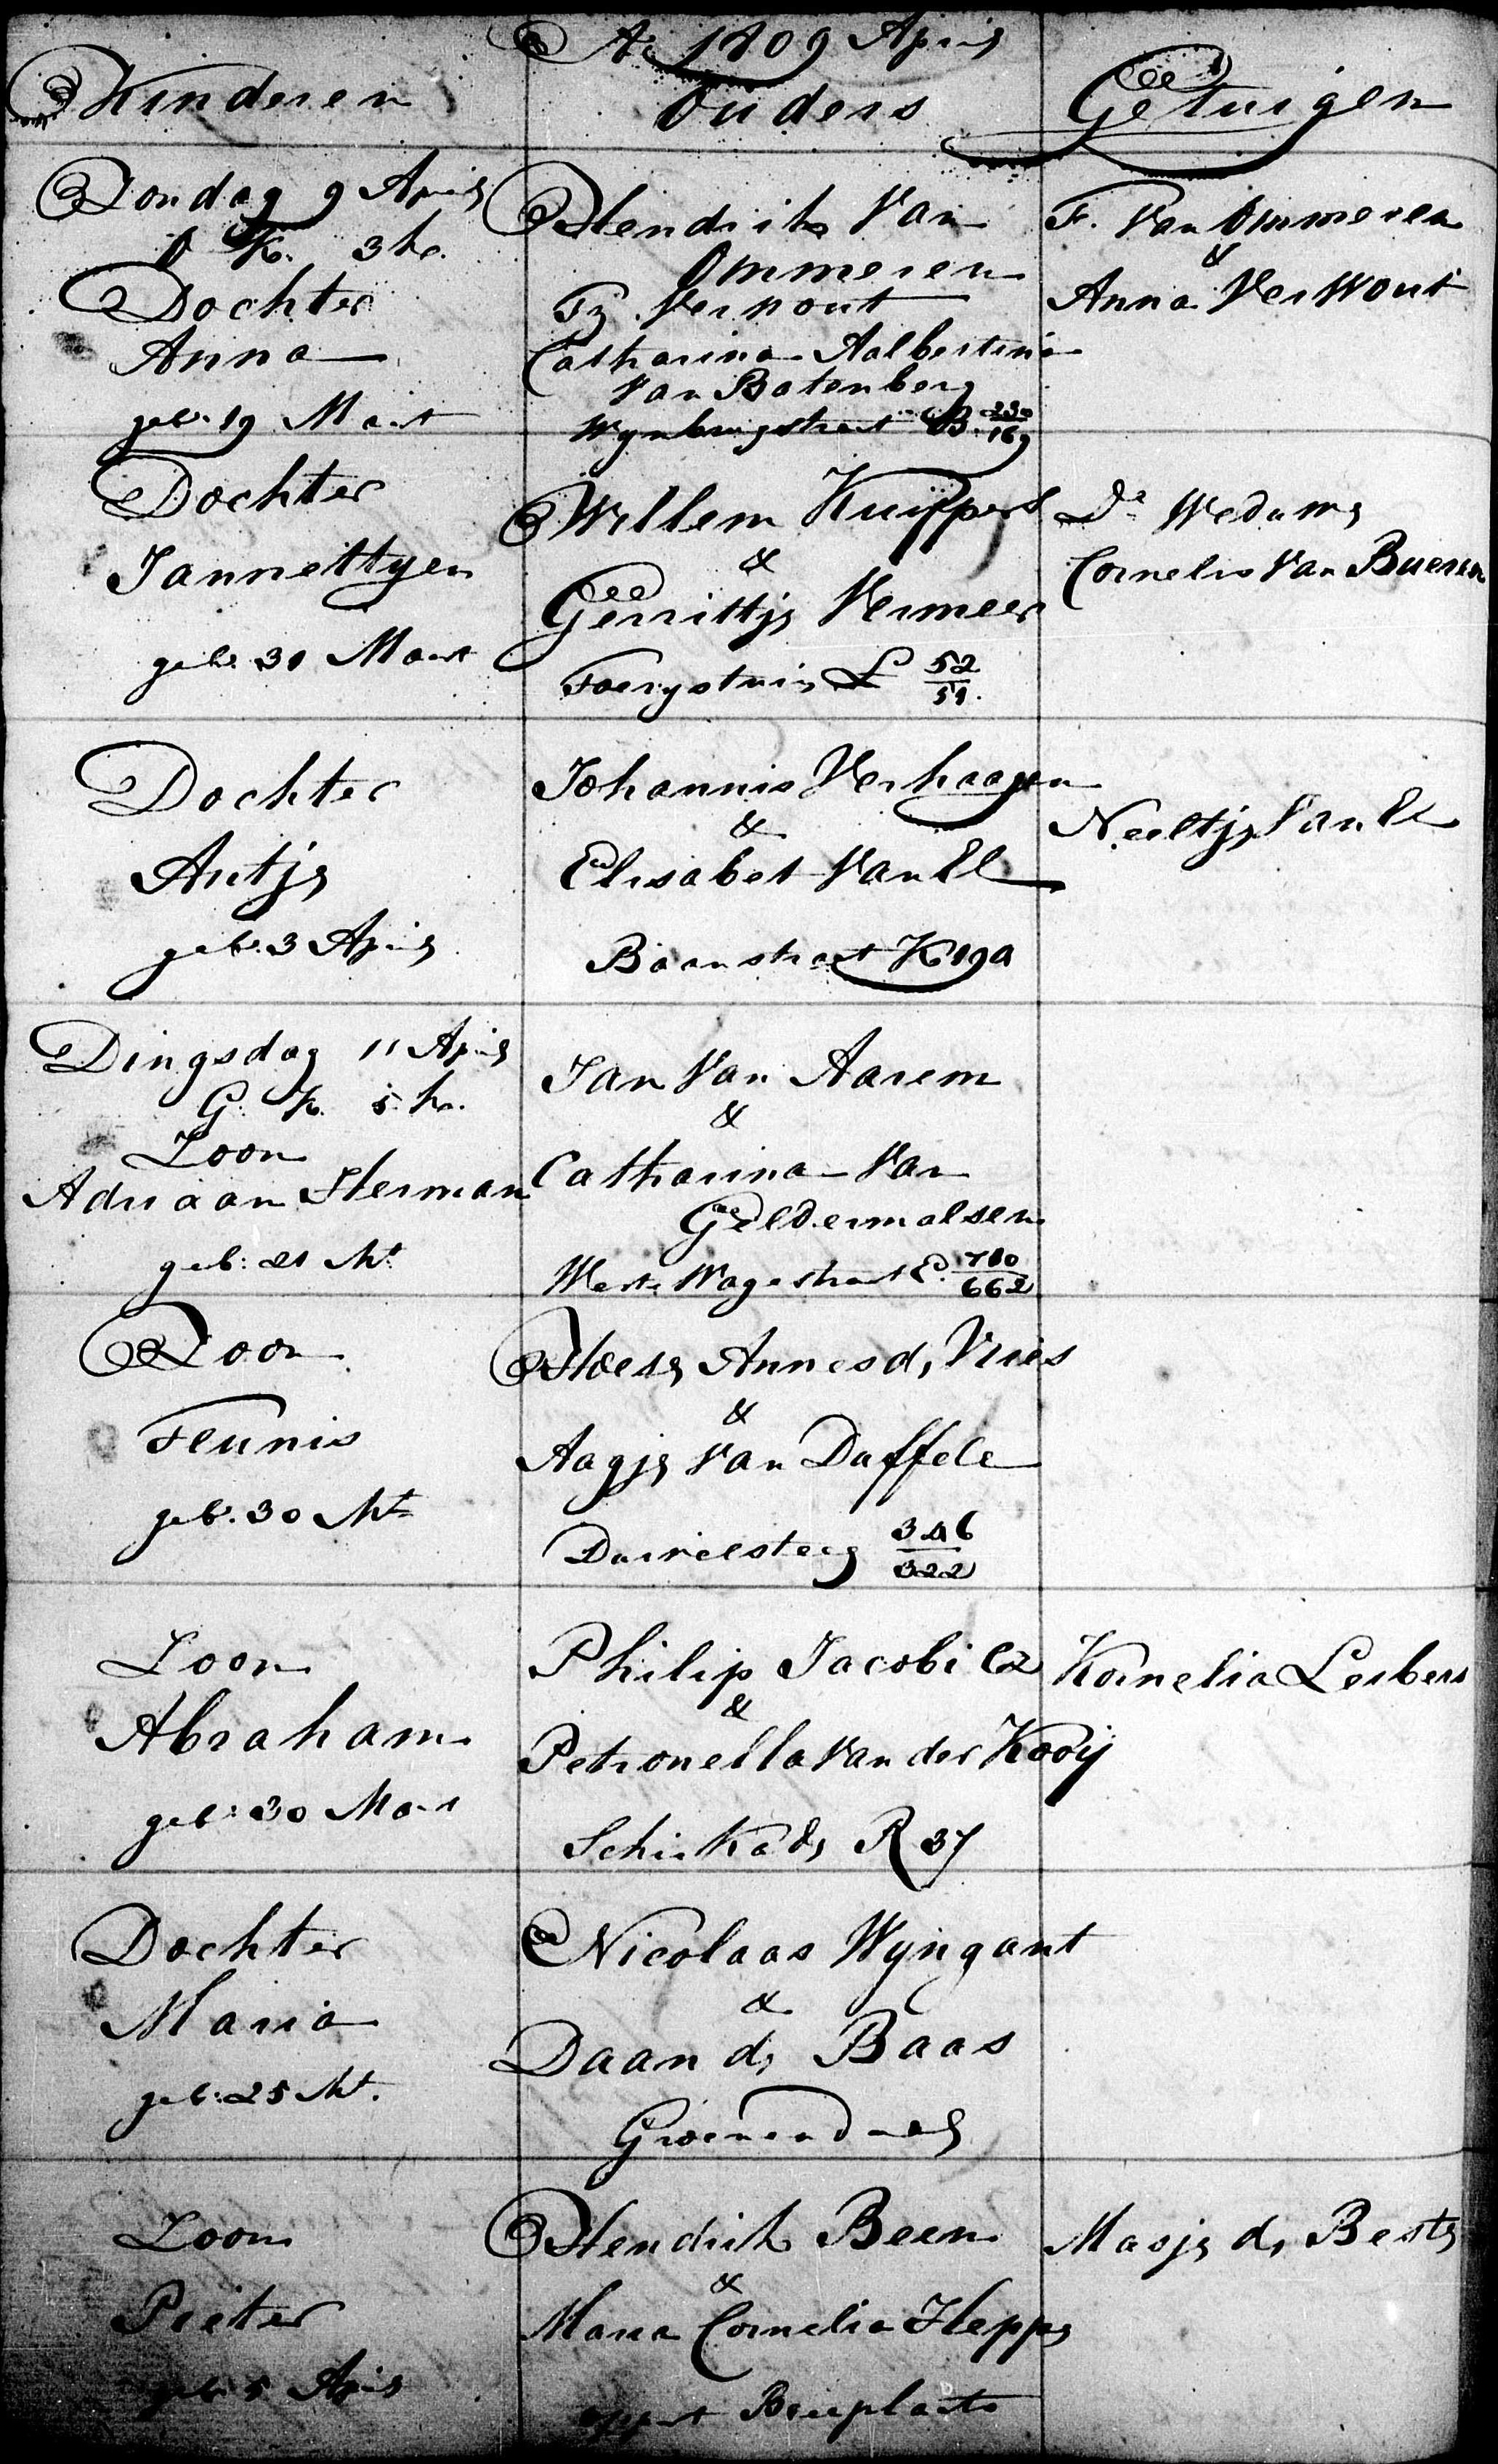 Ao 1809 April
Kinderen
Ouders
Getuigen
Zondag 9 April
O K. 3 h.
Dochter
Anna
geb. 19 Maart
Hendrik Van
Ommeren
Tz. Verwout
Catharina Aalbertina
Van Batenberg
Wynbrugstraat B. 230/169
F. Van Ommeren
&
Anna VerWout
Dochter
Jannettyen
geb. 30 Maart
Willem Kuippers
&
Gerrittje Vermeer
L 52/51.
De Weduwe
Cornelis Van Bueren
Dochter
Antje
geb. 3 April
Johannis Verhaagen
&
Elisabet Van El
Baanstraat K 190
Neeltje Van El
Dingsdag 11 April
G. K. 5 h.
Zoon
Adriaan Herman
geb: 21 Mt
Jan Van Aarem
&
Catharina Van
Geldermalsen
Weste Wagestraat E. 780/662
Zoon
Teunis
geb. 30 Mt
Annes de Vries
&
Aagje Van Duffele
Duivelsteeg 346/322
Zoon
Abraham
geb: 30 Maart
Philip Jacobi Cz
&
Petronella Van der Kooij
Schiekade R 37
Kornelia Leibers
Dochter
Maria
geb: 25 Mt.
Nicolaas Wyngant
&
Daan de Baas
Groenendaal
Zoon
Pieter
geb. 5 April
Hendrik Been
&
Maria Cornelia Heppe
Beeuplaats
Maije de Beste